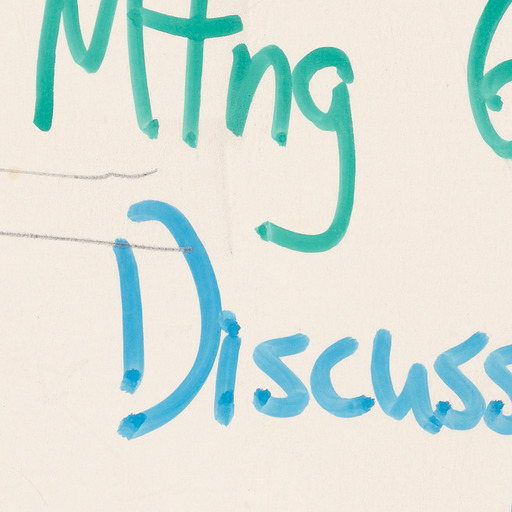 Mtng 6
Discuss